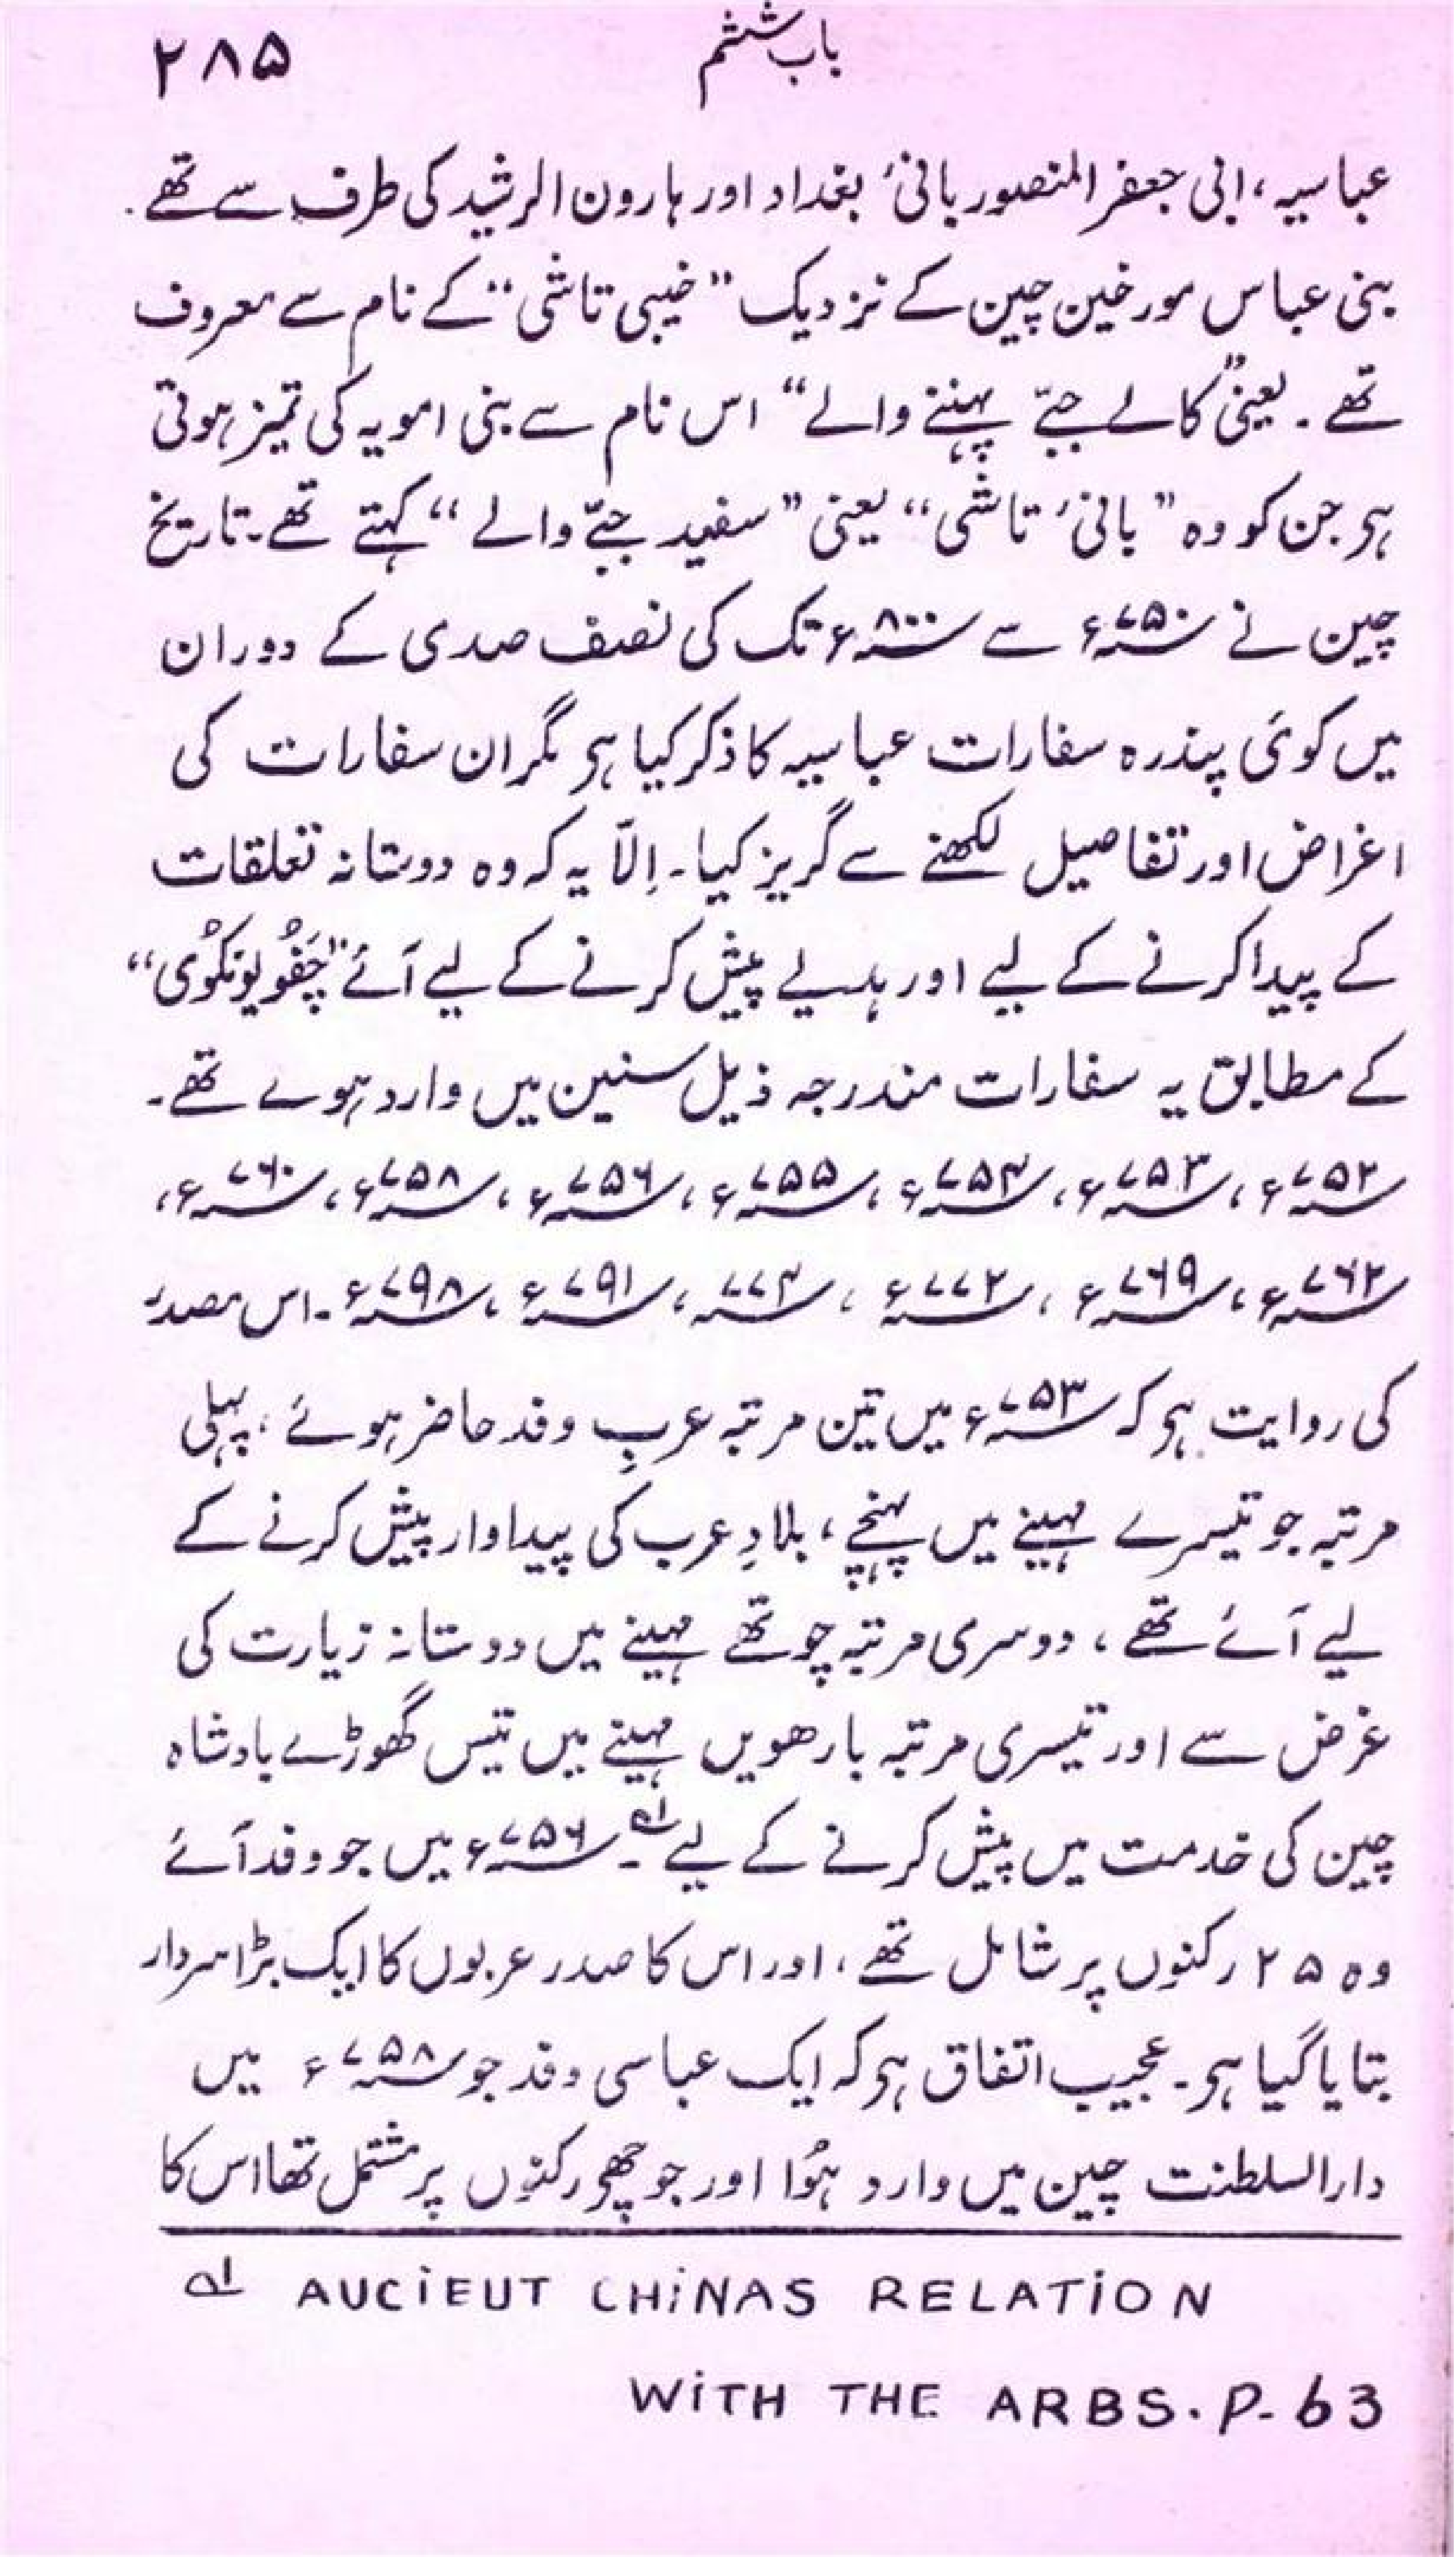 باب ششم
۲۸۵
عباسیہ، ابی جعفر المنصور بانیٔ بغداد اور ہارون الرشید کی طرف سے تھے۔
بنی عباس مورخین چین کے نزدیک ”خیبی تاشی“ کے نام سے معروف
تھے۔ یعنی ”کالے جبّے پہننے والے“ اس نام سے بنی امویہ کی تمیز ہوتی
ہی جن کو وہ ”بائی تاشی“ یعنی ”سفید جبّے والے“ کہتے تھے۔ تاریخ
چین نے ۷۵۰ء سے ۸۰۰ء تک کی نصف صدی کے دوران
میں کوئی پندرہ سفارات عباسیہ کا ذکر کیا ہی مگر ان سفارات کی
اغراض اور تفاصیل لکھنے سے گریز کیا۔ اِلّا یہ کہ وہ دوستانہ تعلقات
کے پیدا کرنے کے لیے اور ہدیے پیش کرنے کے لیے آئے ”چَفُویُونکوُی“
کے مطابق یہ سفارات مندرجہ ذیل سنین میں وارد ہوے تھے۔
۷۵۲ء، ۷۵۳ء، ۷۵۴ء، ۷۵۵ء، ۷۵۶ء، ۷۵۸ء، ۷۶۰ء،
۷۶۲ء، ۷۶۹ء، ۷۷۲ء، ۷۷۴، ۷۹۱ء، ۷۹۸ء۔ اس مصدر
کی روایت ہی کہ ۷۵۳ء میں تین مرتبہ عرب وفد حاضر ہوئے، پہلی
مرتبہ جو تیسرے مہینے میں پہنچے، بلادِ عرب کی پیداوار پیش کرنے کے
لیے آئے تھے، دوسری مرتبہ چوتھے مہینے میں دوستانہ زیارت کی
غرض سے اور تیسری مرتبہ بارھویں مہینے میں تیس گھوڑے بادشاہ
چین کی خدمت میں پیش کرنے کے لیے لہ۔ ۷۵۶ء میں جو وفد آئے
وہ ۲۵ رکنوں پر شامل تھے، اور اس کا صدر عربوں کا ایک بڑا سردار
بتایا گیا ہی۔ عجیب اتفاق ہی کہ ایک عباسی وفد جو ۷۵۸ء میں
دارالسلطنت چین میں وارد ہُوا اور جو چھو رکنوں پر مشتمل تھا اس کا
لہ AUCIEUT CHINAS RELATION
WITH THE ARBS. P- 63